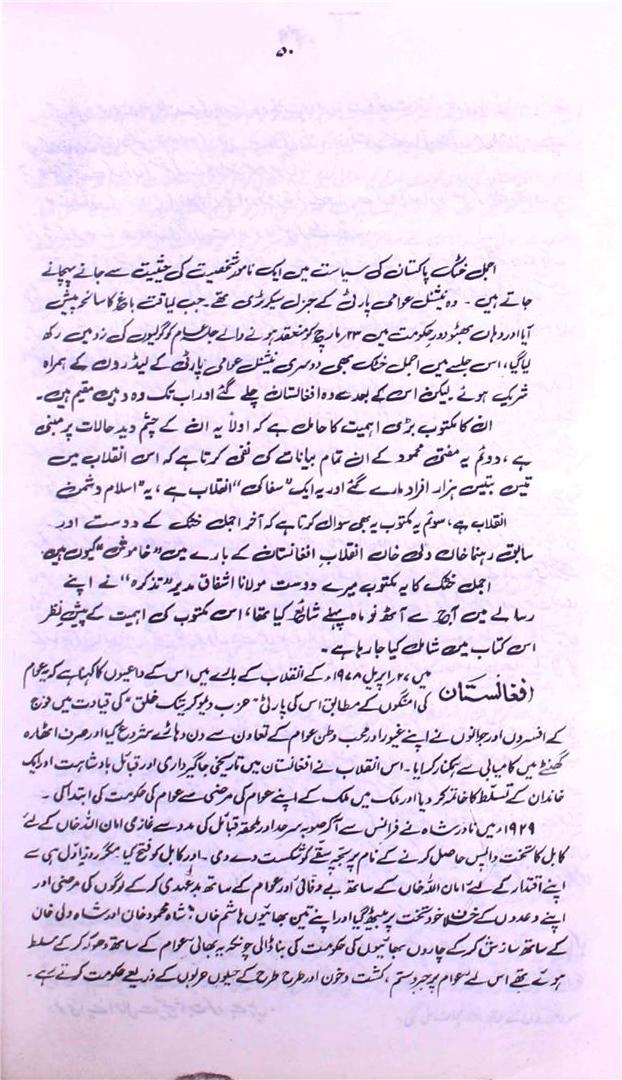 ۵۰
اجمل خٹک پاکستان کی سیاست میں ایک نامور شخصیت کی حیثیت سے جانے پہچانے
جاتے ہیں ۔ وہ نیشنل عوامی پارٹی کے جنرل سیکرٹری تھے۔ جب لیاقت باغ کا سانحہ پیش
آیا اور وہاں بھٹو دور حکومت میں ۲۳ مارچ کو منعقد ہونے والے جلسۂ عام کو گولیوں کی زد میں رکھ
لیا گیا، اس جلسے میں اجمل خٹک بھی دوسری نیشنل عوامی پارٹی کے لیڈروں کے ہمراہ
شریک ہوئے لیکن اس کے بعد سے وہ افغانستان چلے گئے اور اب تک وہ وہیں مقیم ہیں۔
ان کا مکتوب بڑی اہمیت کا حامل ہے کہ اولاً یہ ان کے چشم دید حالات پر مبنی
ہے ، دوئم یہ مفتی محمود کے ان تمام بیانات کی نفی کرتا ہے کہ اس انقلاب میں
تیس بتیس ہزار افراد مارے گئے اور یہ ایک "سفاکی" انقلاب ہے ، یہ "اسلام دشمن
انقلاب ہے ، سوئم یہ مکتوب یہ بھی سوال کرتا ہے کہ آخر اجمل خٹک کے دوست اور
سابق رہنما خان ولی خان انقلابِ افغانستان کے بارے میں "خاموش" کیوں ہیں
اجمل خٹک کا یہ مکتوب میرے دوست مولانا اشفاق مدیر "تذکرہ" نے اپنے
رسالے میں آج سے آٹھ نو ماہ پہلے شائع کیا تھا، اس مکتوب کی اہمیت کے پیش نظر
اس کتاب میں شامل کیا جا رہا ہے ۔
افغانستان میں ۲۷ اپریل ۱۹۷۸ء کے انقلاب کے بارے میں اس کے داعیوں کا کہنا ہے کہ یہ عوام
کی امنگوں کے مطابق اس کی پارٹی "حزب دیموکریتک خلق" کی قیادت میں فوج
کے افسروں اور جوانوں نے اپنے غیور اور محب وطن عوام کے تعاون سے دن دہاڑے شروع کیا اور صرف اٹھارہ
گھنٹے میں کامیابی سے ہمکنار کرایا ۔ اس انقلاب نے افغانستان میں تاریخی جاگیرداری اور قبائل بادشاہت اور ایک
خاندان کے تسلط کا خاتمہ کر دیا اور ملک میں ملک کے اپنے عوام کی مرضی سے عوام کی حکومت کی ابتدا کی ۔
۱۹۲۹ء میں نادر شاہ نے فرانس سے آ کر صوبہ سرحد اور ملحقہ قبائل کی مدد سے غازی امان اللہ خاں کے لئے
کابل کا تخت واپس حاصل کرنے کے نام پر بچہ سقے کو شکست دے دی ۔ اور کابل کو فتح کیا مگر روز اول ہی سے
اپنے اقتدار کے لئے امان اللہ خاں کے ساتھ بے وفائی اور عوام کے ساتھ بدعہدی کر کے لوگوں کی مرضی اور
اپنے وعدوں کے خلاف خود تخت پر بیٹھ گیا اور اپنے تین بھائیوں ہاشم خاں ، شاہ محمود خان اور شاہ ولی خان
کے ساتھ سازش کر کے چاروں بھائیوں کی حکومت کی بنا ڈالی چونکہ یہ بھائی عوام کے ساتھ دھوکہ کر کے مسلط
ہوئے تھے اس لئے عوام پر جبر و ستم ، کشت و خون اور طرح طرح کے حیلوں حربوں کے ذریعے حکومت کرتے رہے ۔